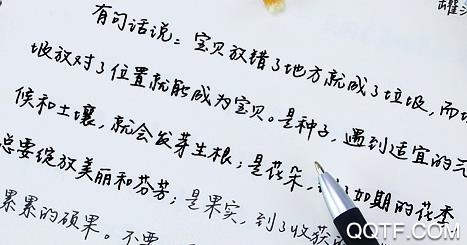 罐
有句话说：宝贝放错了地方就成了垃圾，而垃
圾放对了位置就能成为宝贝。是种子，遇到适宜的气
候和土壤，就会发芽生根；是花朵，了如期的花季
总要绽放美丽和芬芳；是果实，到了收获的
累累的硕果。不要
QQTF.COM